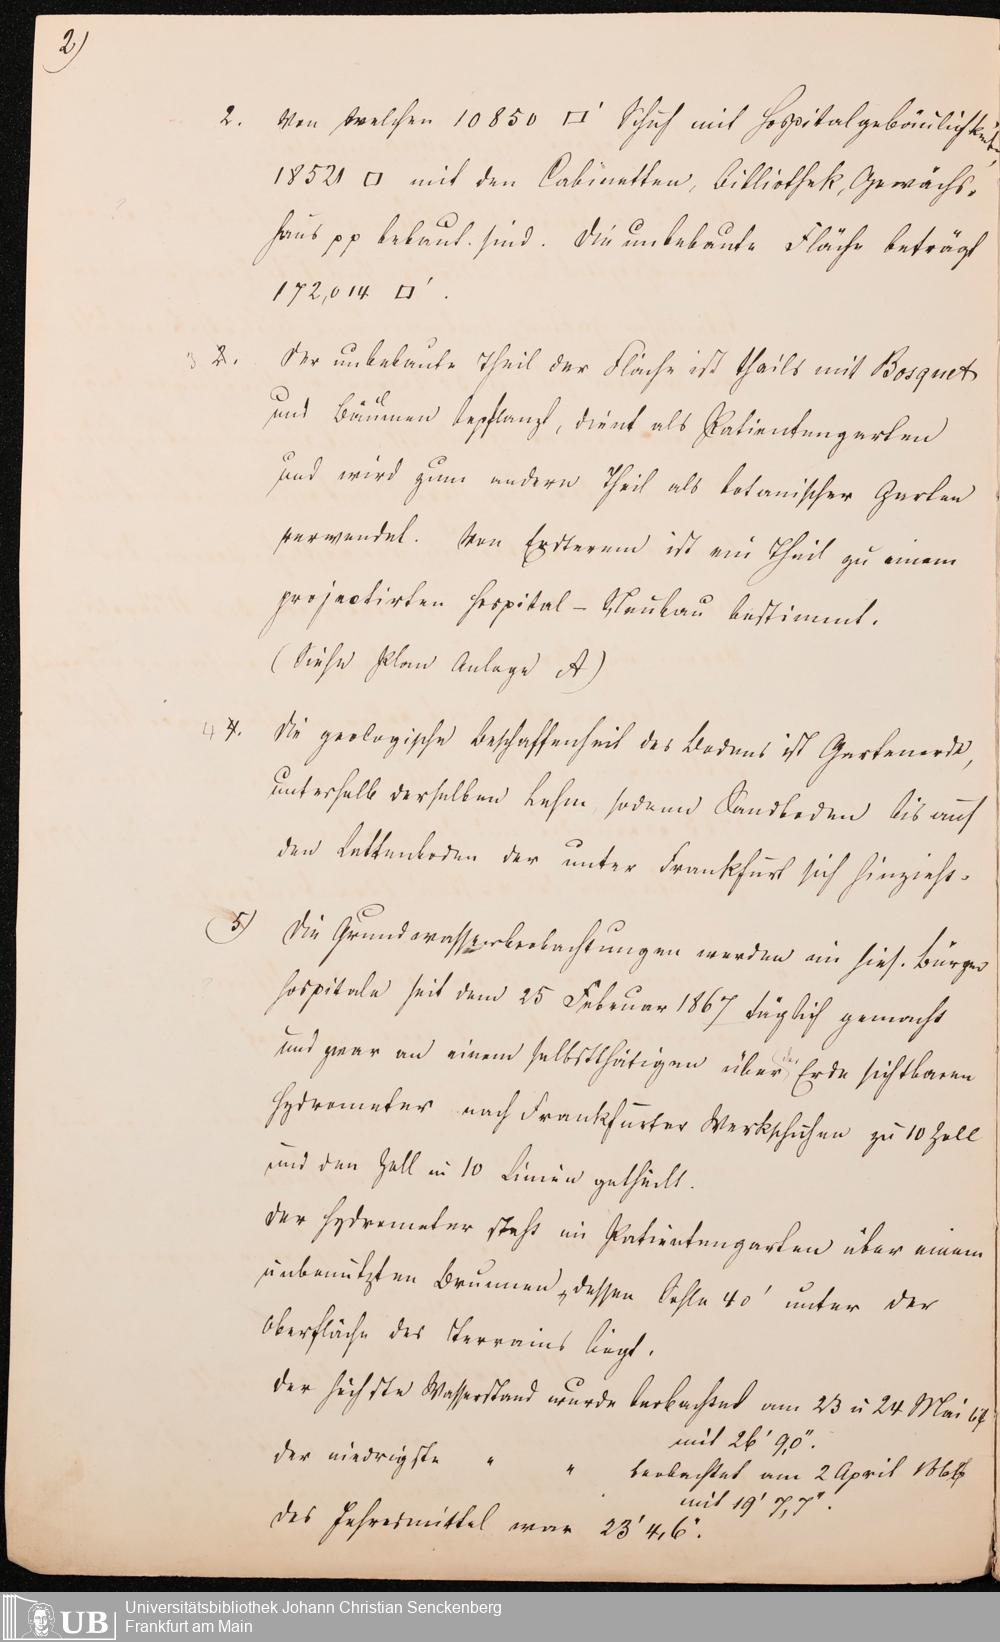 2)
2. Von welchen 10850 □' Schuh mit Hospitalgebäulichkeiten
18521 □ mit den Cabinetten, Bibliothek, Gewächs-
haus pp bebaut sind. Die unbebaute Fläche beträgt
172,014 □'.
3 2. Der unbebaute Theil der Fläche ist theils mit Bosquet
und Bäumen bepflanzt, dient als Patientengarten
und wird zum andern Theil als botanischer Garten
verwendet. Von Ersterem ist ein Theil zu einem
projectirten Hospital-Neubau bestimmt.
(Siehe Plan Anlage A)
4 4. Die geologische Beschaffenheit des Bodens ist Gartenerde,
unterhalb derselben Lehm, sodann Sandboden bis auf
den Lettenboden der unter Frankfurt sich hinzieht.
5) Die Grundwasserbeobachtungen werden im hies. Bürger
hospitale seit dem 25 Februar 1867 täglich gemacht
und zwar an einem selbstthätigen über der Erde sichtbaren
Hydrometer nach Frankfurter Werkschuhen zu 10 Zoll
und den Zoll in 10 Linien getheilt.
Der Hydrometer steht im Patientengarten über einem
unbenutzten Brunnen, dessen Sohle 40' unter der
Oberfläche des Terrains liegt.
Der höchste Wasserstand wurde beobachtet am 23 u 24 Mai 67
mit 26' 9,0".
der niedrigste " " beobachtet am 2 April
mit 19' 7,7".
Das Jahresmittel war 23' 4,6".
UB
Universitätsbibliothek Johann Christian Senckenberg
Frankfurt am Main